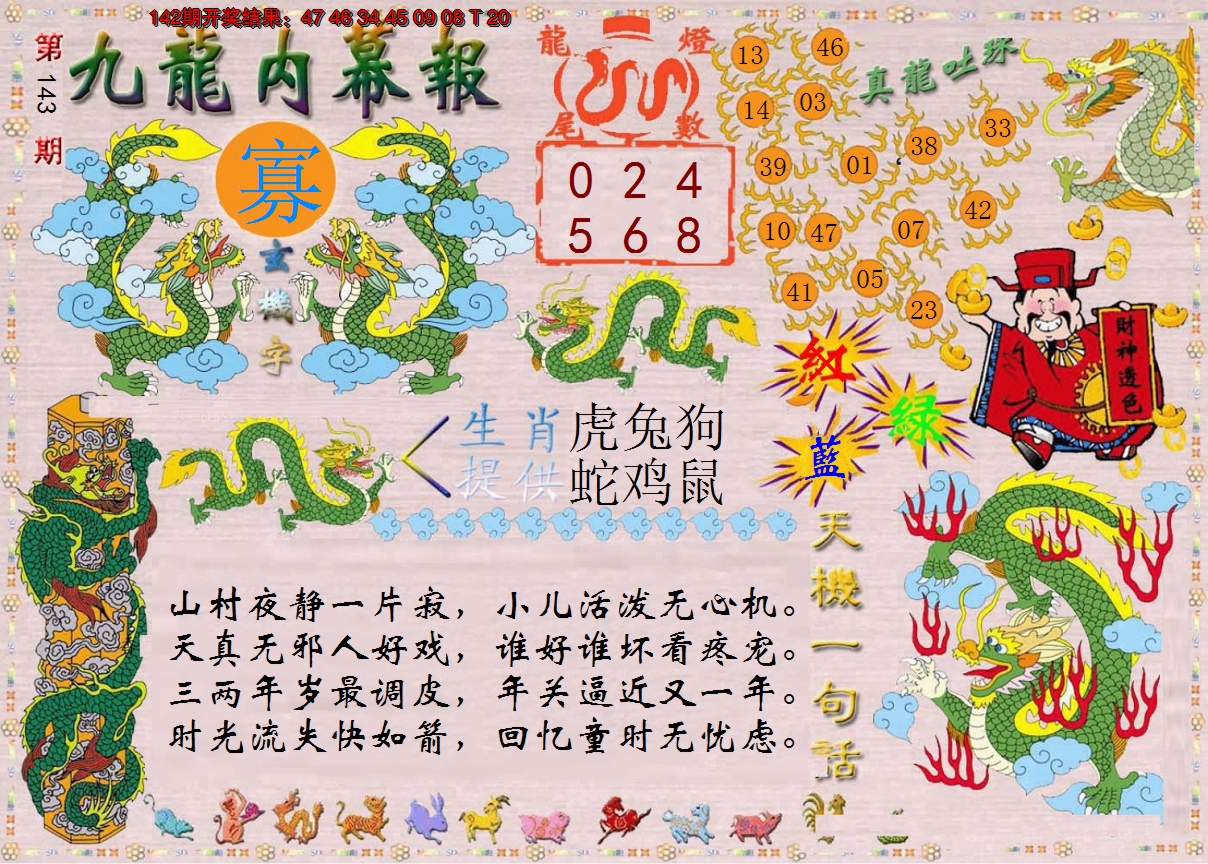 142期开奖结果：47 46 34 45 09 08 T 20
第143期
九龍内幕報
寡
玄機字
龍燈
尾數
0 2 4
5 6 8
真龍吐珠
13 46
14 03
39 01 38 33
10 47 07 42
41 05 23
財神透色
紅
綠
藍
生肖 虎兔狗
提供 蛇鸡鼠
天機一句話
山村夜静一片寂，小儿活泼无心机。
天真无邪人好戏，谁好谁坏看疼宠。
三两年岁最调皮，年关逼近又一年。
时光流失快如箭，回忆童时无忧虑。